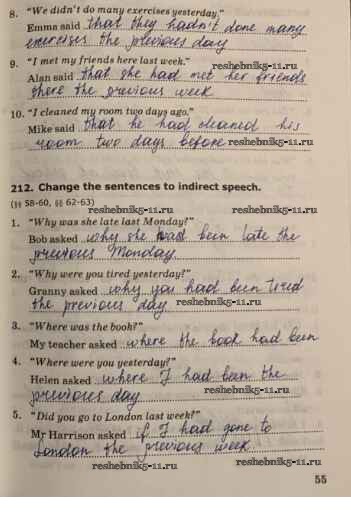 8. "We didn't do many exercises yesterday."
Emma said that they hadn't done many
exercises the previous day
9. "I met my friends here last week." reshebnik5-11.ru
Alan said that she had met her friends
there the previous week
10. "I cleaned my room two days ago."
Mike said that he had cleaned his
room two days before reshebnik5-11.ru
212. Change the sentences to indirect speech.
(§§ 58-60, §§ 62-63)
reshebnik5-11.ru reshebnik5-11.ru
1. "Why was she late last Monday?"
Bob asked why she had been late the
previous Monday
2. "Why were you tired yesterday?"
Granny asked why you had been tired
the previous day reshebnik5-11.ru
3. "Where was the book?"
My teacher asked where the book had been
4. "Where were you yesterday?"
Helen asked where I had been the
previous day reshebnik5-11.ru
5. "Did you go to London last week?"
Mr Harrison asked if I had gone to
London the previous week
reshebnik5-11.ru reshebnik5-11.ru
55